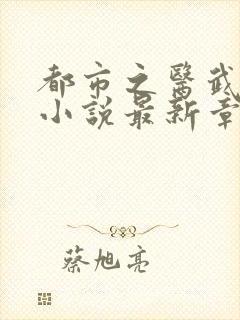 都市之醫武
小說最新章
蔡旭亮